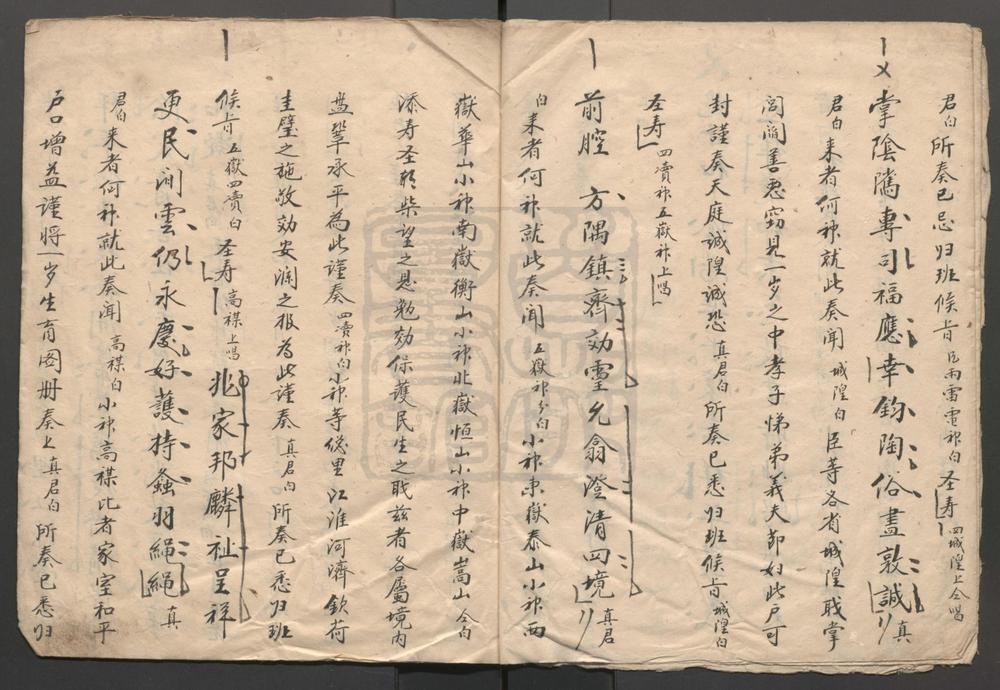 君白所奏已悉归班候旨风雨雷電神白圣寿四城隍上仝唱
掌陰隲專司福應幸鈞陶俗盡敦誠真
君白来者何神就此奏闻城隍白臣等各省城隍戝掌
閭閻善恶窃見一岁之中孝子悌弟義夫节妇比户可
封謹奏天庭誠隍誠恐真君白所奏已悉归班候旨城隍白
圣寿四瀆神五嶽神上唱
前腔 方隅鎮齊効靈允翕澄清四境真君
白来者何神就此奏闻五嶽神分白小神東嶽泰山小神西
嶽華山小神南嶽衡山小神北嶽恒山小神中嶽嵩山仝白
添寿圣朝柴望之恩勉効保護民生之戝兹者各屬境内
盤鞏承平為此謹奏四瀆神白小神等江淮河濟欽荷
圭璧之施敬効安瀾之报為此謹奏真君白所奏已悉归班
候旨五嶽四瀆白圣寿高禖上唱兆家邦麟祉呈祥
更民间雲仍永慶好護持螽羽繩繩真
君白来者何神就此奏闻高禖白小神高禖比者家室和平
户口增益謹將一岁生育图册奏上真君白所奏已悉归